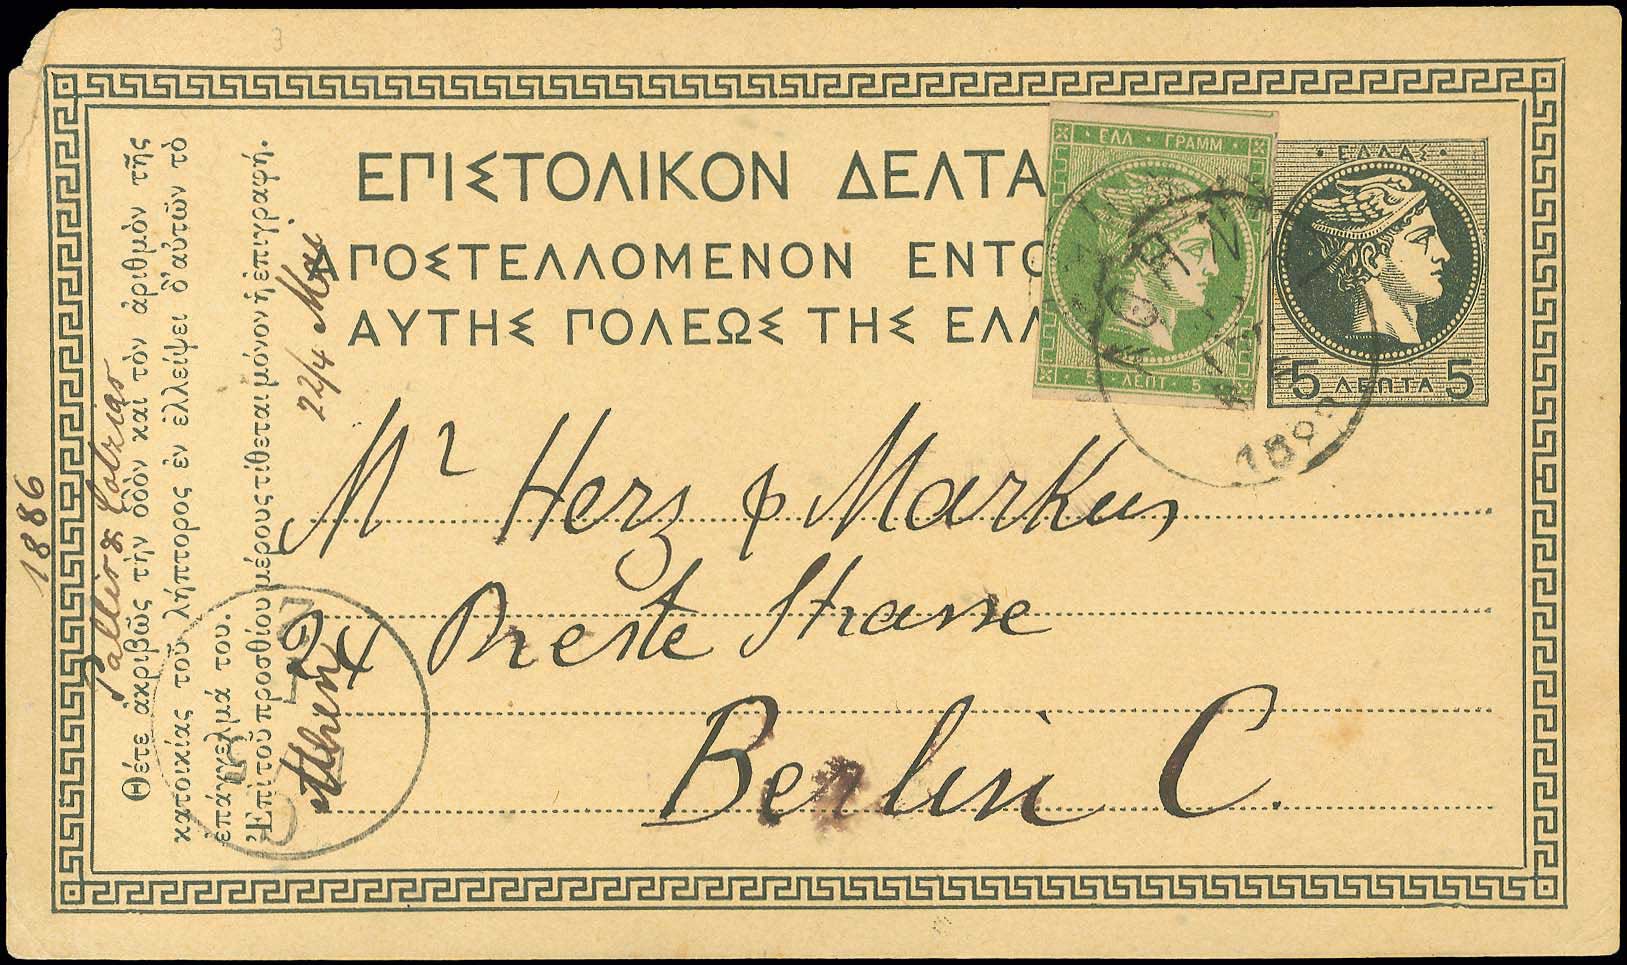 ΕΠΙΣΤΟΛΙΚΟΝ ΔΕΛΤΑ
ΑΠΟΣΤΕΛΛΟΜΕΝΟΝ ΕΝΤΟ
ΑΥΤΗΣ ΠΟΛΕΩΣ ΤΗΣ ΕΛΛ
ΕΛΛ · ΓΡΑΜΜ
5 ΛΕΠΤ 5
· ΕΛΛΑΣ ·
5 ΛΕΠΤΑ 5
Mr Herz & Markus
24 Breite Strasse
Berlin C.
Θέτε ἀκριβῶς τὴν ὁδὸν καὶ τὸν ἀριθμὸν τῆς
κατοικίας τοῦ λήπτορος ἐν ἐλλείψει δ'αὐτῶν τὸ
ἐπάγγελμά του.
Ἐπὶ τοῦ προσθίου μέρους τίθεται μόνον ἡ ἐπιγραφή.
1886
22/4 Mai
Athen
3